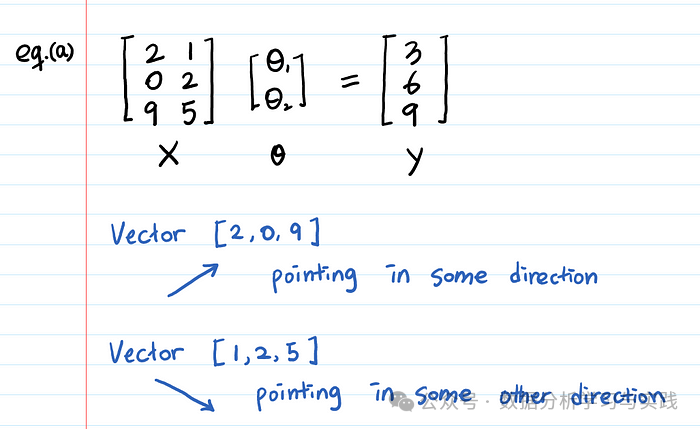 eq.(a) [2 1] [θ₁] = [3]
[0 2] [θ₂] [6]
[9 5] [9]
X θ y
Vector [2,0,9]
pointing in some direction
Vector [1,2,5]
pointing in some other direction
公众号 · 数据分析学习与实践